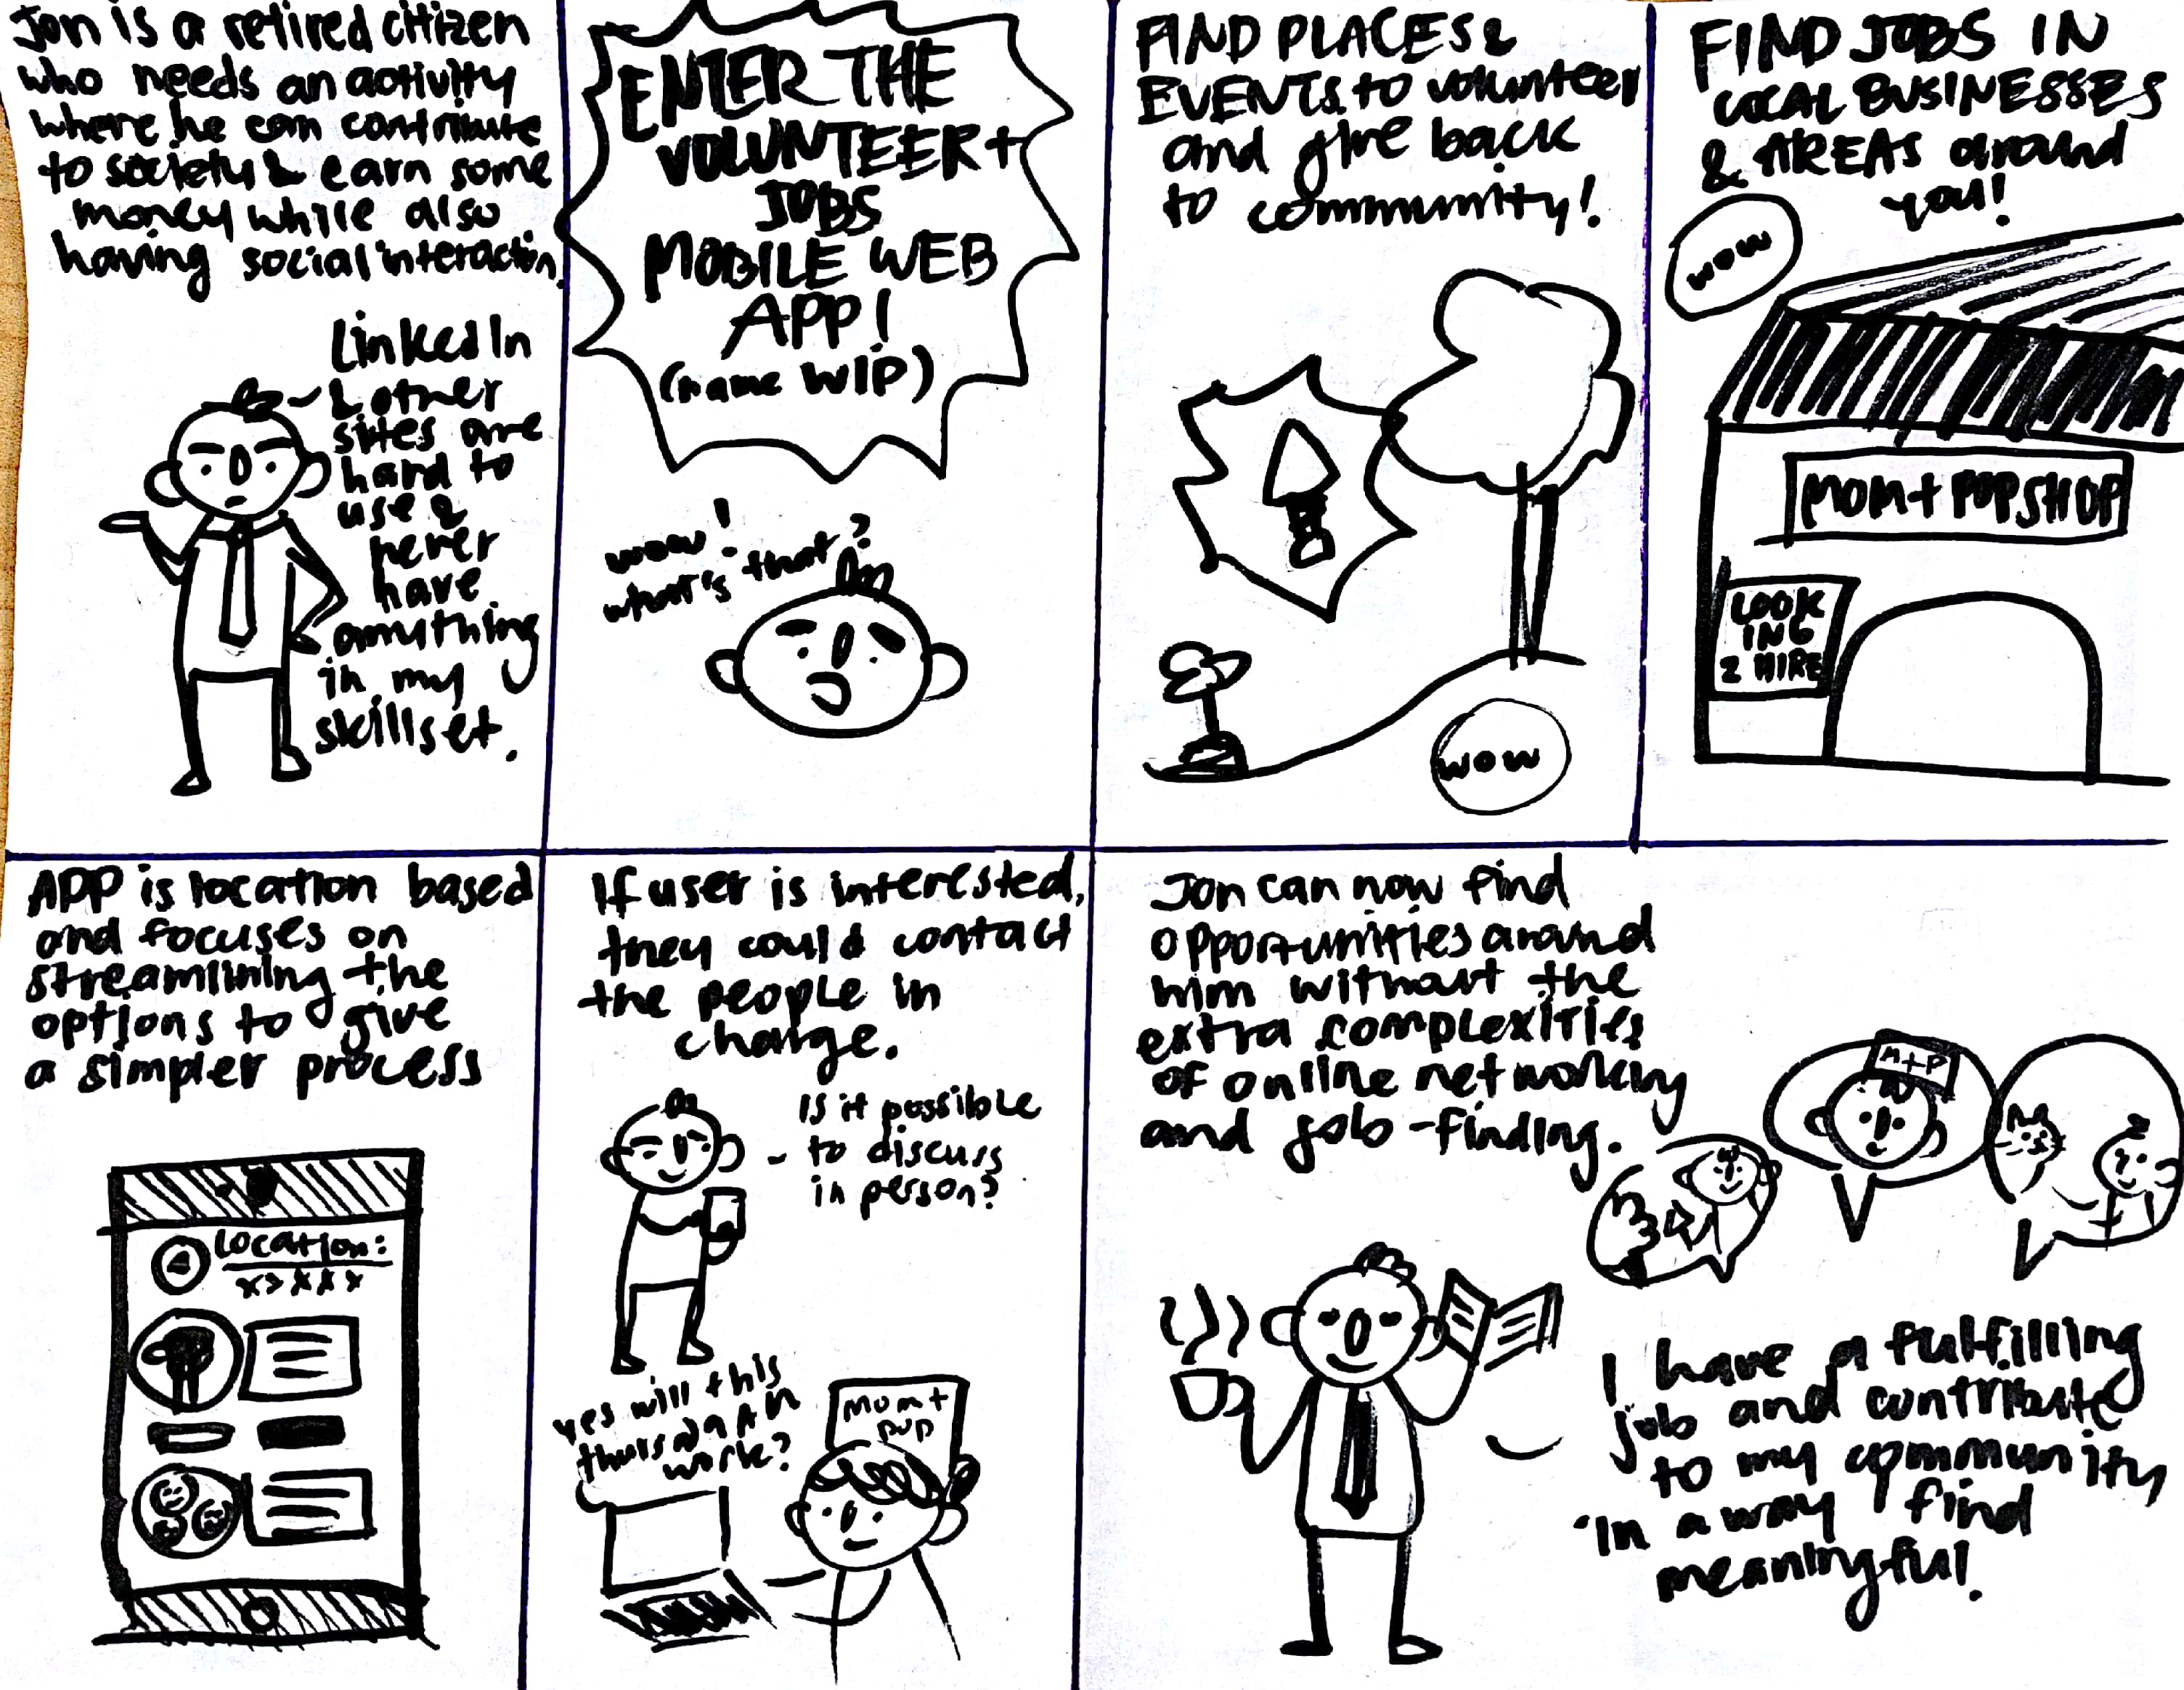 Jon is a retired citizen
who needs an activity
where he can contribute
to society & earn some
money while also
having social interaction.
LinkedIn
& other
sites are
hard to
use &
never
have
anything
in my
skillset.
ENTER THE
VOLUNTEER +
JOBS
MOBILE WEB
APP!
(name WIP)
wow!
what's that?
FIND PLACES &
EVENTS to volunteer
and give back
to community!
WOW
FIND JOBS IN
LOCAL BUSINESSES
& AREAS around
you!
WOW
MOM + POP SHOP
LOOK
ING
2 HIRE
APP is location based
and focuses on
streamlining the
options to give
a simpler process
LOCATION:
If user is interested,
they could contact
the people in
charge.
Is it possible
to discuss
in person?
yes will this
thursday
work?
mom +
pop
Jon can now find
opportunities around
him without the
extra complexities
of online networking
and job-finding.
M+P
I have a fulfilling
job and contribute
to my community
in a way I find
meaningful.